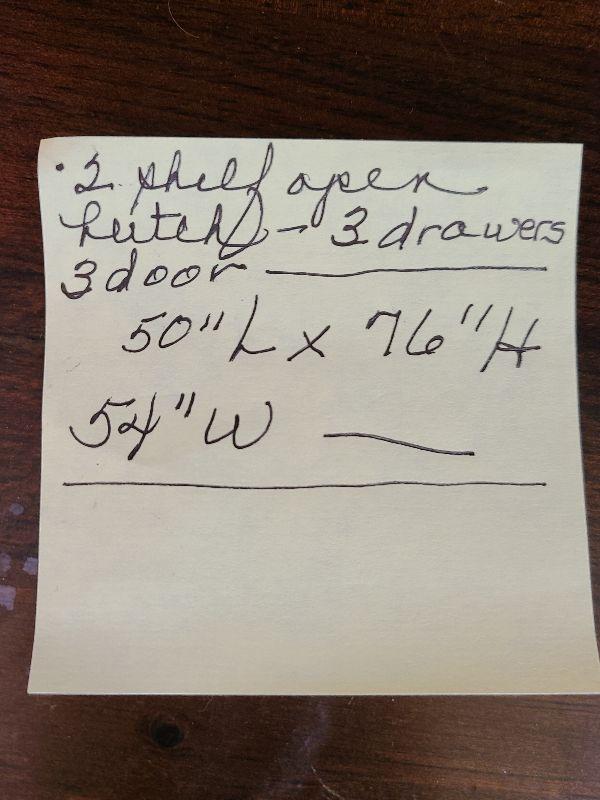 · 2 shelf open
hutch - 3 drawers
3 door
50" L x 76" H
54" W